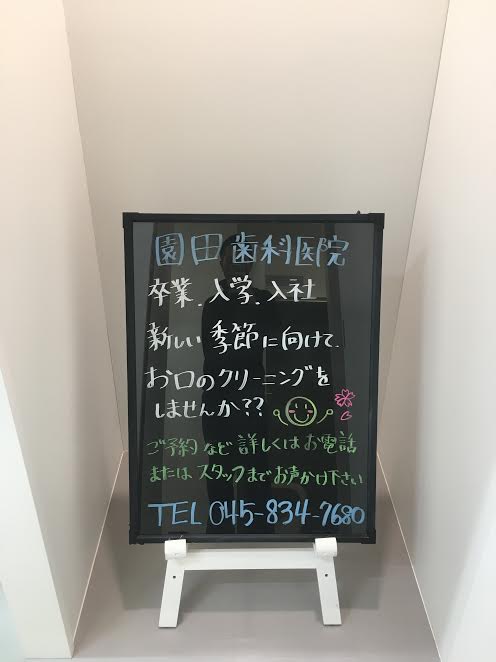 園田歯科医院
卒業、入学、入社
新しい季節に向けて、
お口のクリーニングを
しませんか??
ご予約など詳しくはお電話
またはスタッフまでお声かけ下さい
TEL 045-834-7680